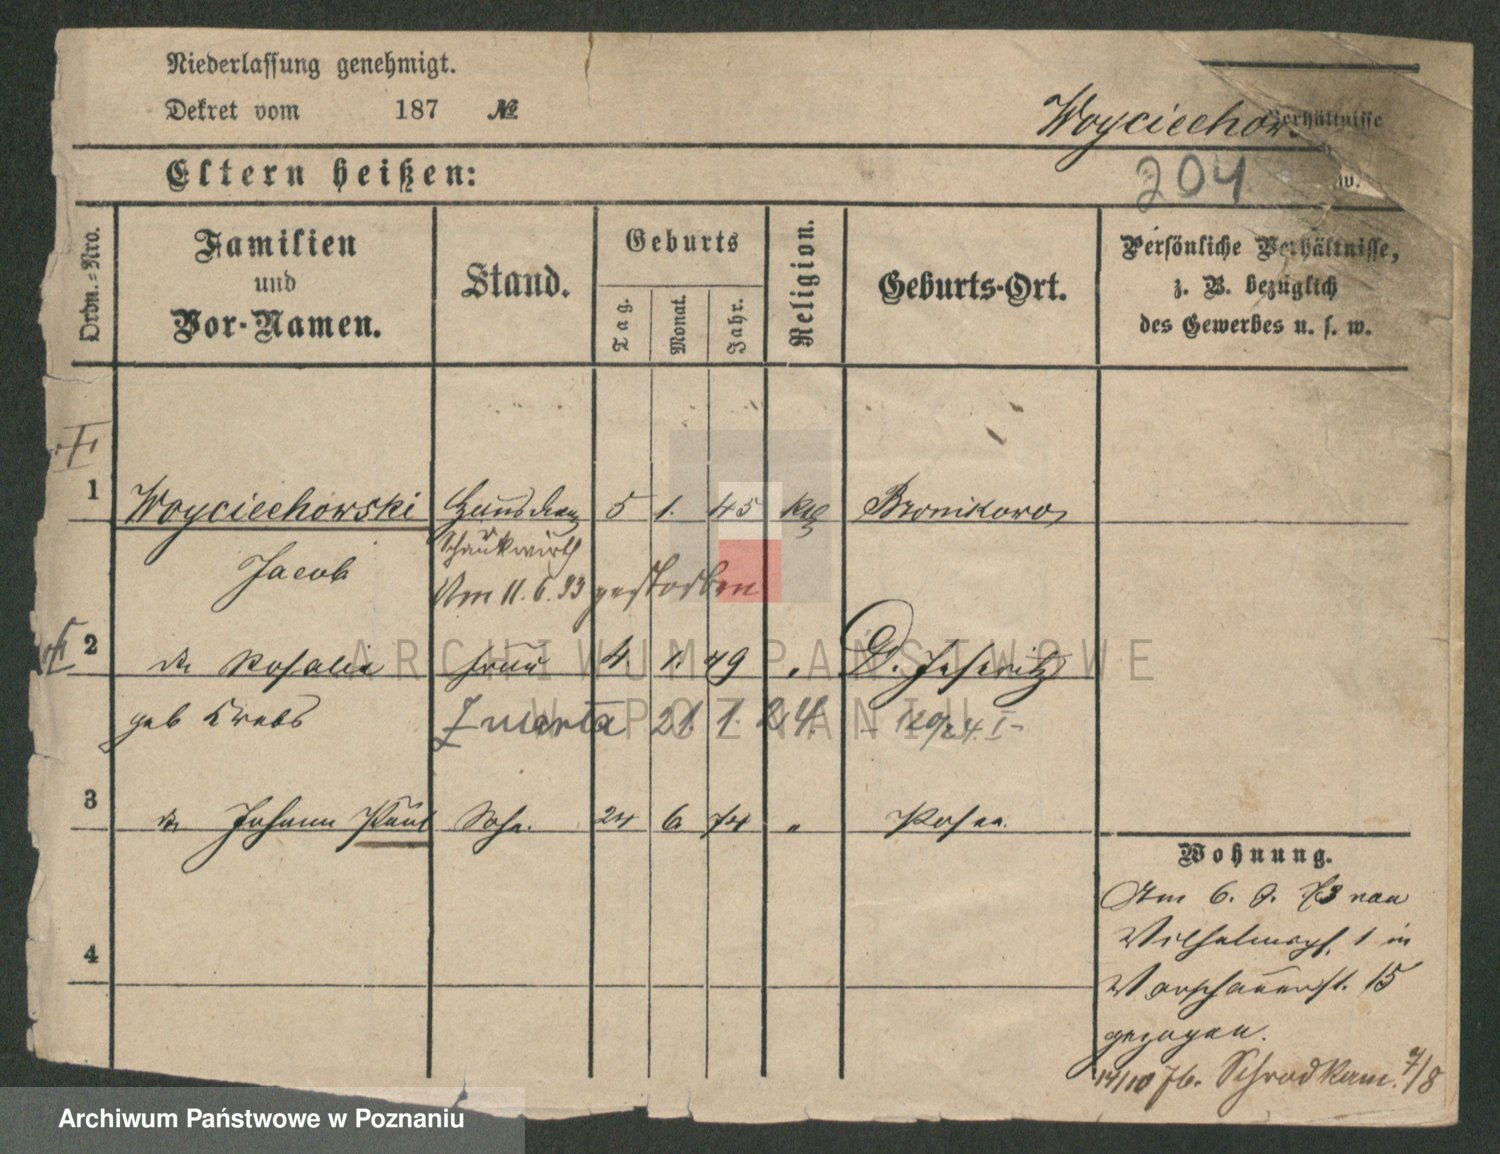 Niederlassung genehmigt.
Dekret vom 187 №
Woyciechow
Verhältnisse
Eltern heißen:
204
w.
Ordn.-Nro.
Familien
und
Vor-Namen.
Stand.
Geburts
Tag.
Monat.
Jahr.
Religion.
Geburts-Ort.
Persönliche Verhältnisse,
z. B. bezüglich
des Gewerbes u. s. w.
1 Woyciechowski 5 1. 45 kth Bronikowo
Jacob
Schankwirth
Am 11. 6. 93 gestorben
2 Rosalie Frau 4. 1. 49 „ D. Jeseritz
geb Krebs
Zmarła 21. 1. 24.
3 Johann Paul Sohn. 24 6 74 „ Posen.
4
Wohnung.
Am 6. 73 von
Wilhelmspl. 1 in
Warschauerst. 15
gezogen.
14/10 76. Schrodkam. 7/8
ARCHIWUM PAŃSTWOWE
W POZNANIU
Archiwum Państwowe w Poznaniu